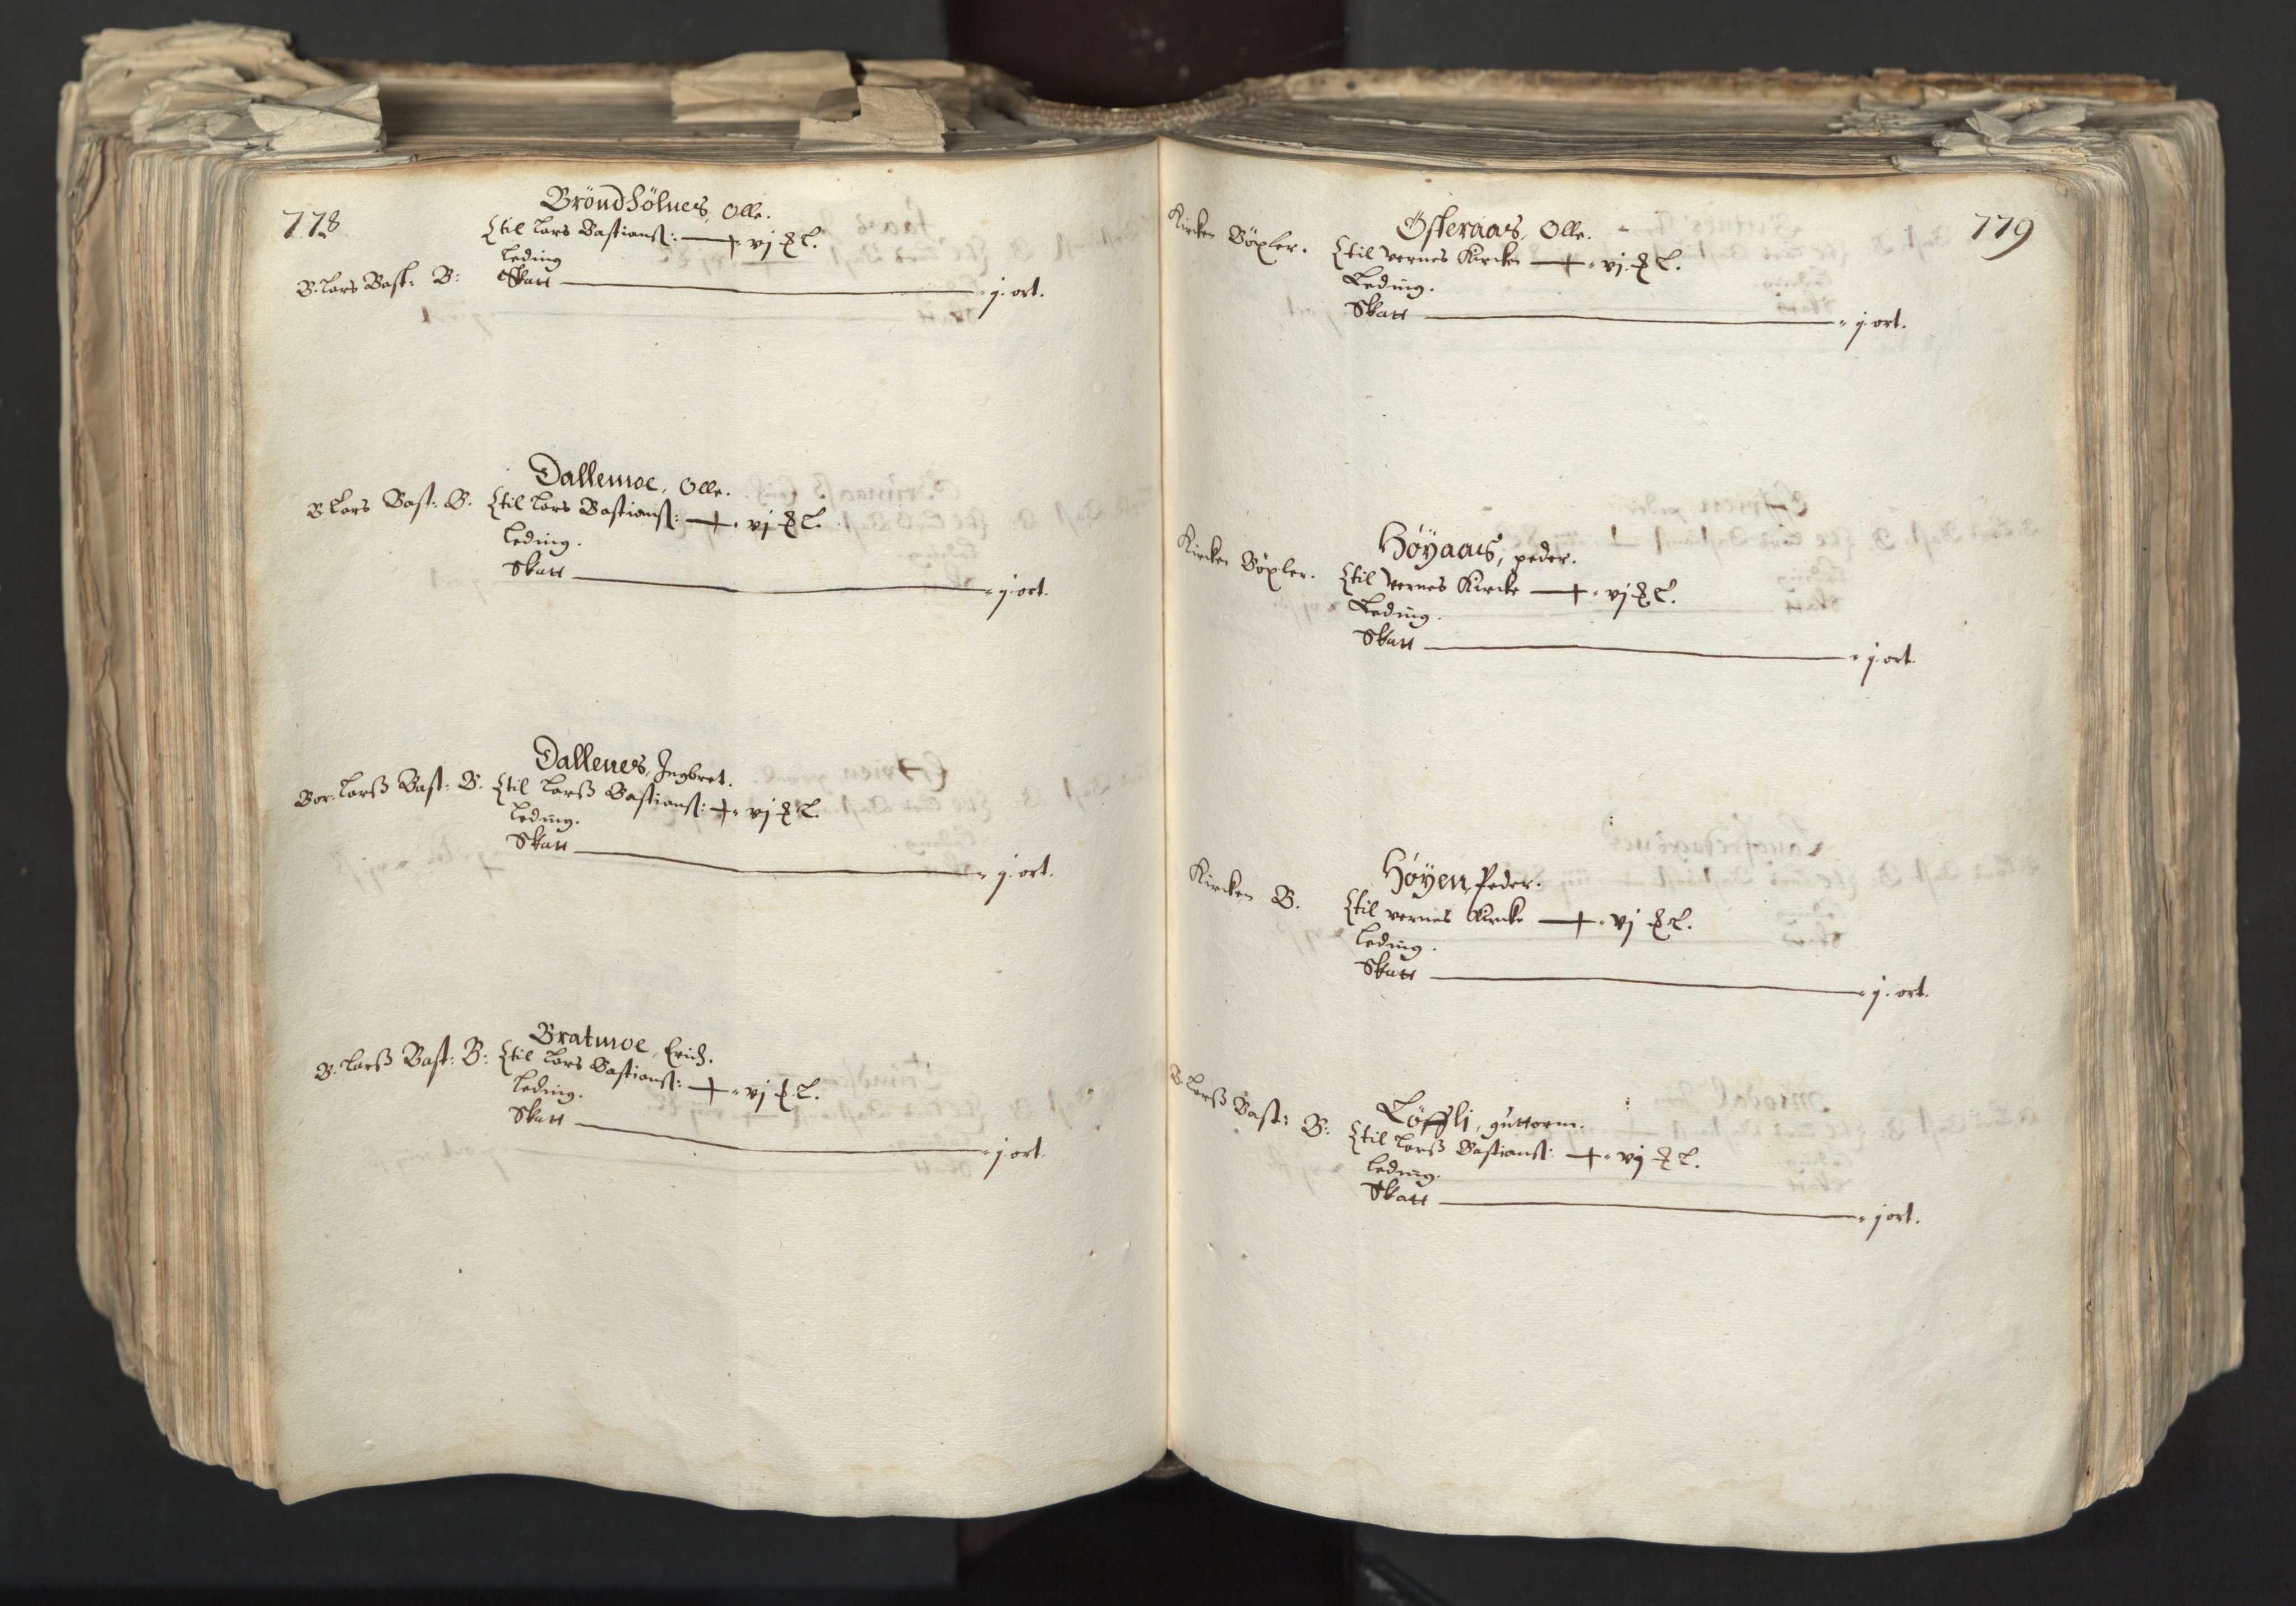 778.
Bröndhölnes, Olle.
til Lars Bastianß: — vj
Leding
B. Lars Bast: B: Skatt — j. ort.
Dallemoe, Olle.
B Lars Bast: B. til Lars Bastianß: — vj
Leding.
Skatt — j. ort.
Dallenes, Ingbret.
Bor: Larß Bast: B. til Larß Bastianß: — vj
Leding.
Skatt — j. ort.
Bratmoe, Erich.
B. Larß Bast: B: til Lars Bastianß: — vj
Leding.
Skatt — j. ort.
779
Österaas, Olle.
Kircken Böxler. til Vernes Kircke — vj.
Leding.
Skatt — j. ort.
Höyaas, peder.
Kircken Böxler. til Vernes Kircke — vj
Leding.
Skatt — j. ort.
Höyen, Peder.
Kircken B. til vernes Kircke — vj
Leding.
Skatt — j. ort.
Löffli, guttorm.
B. Larß Bast: B: til Larß Bastianß: — vj
Leding.
Skatt — j ort.